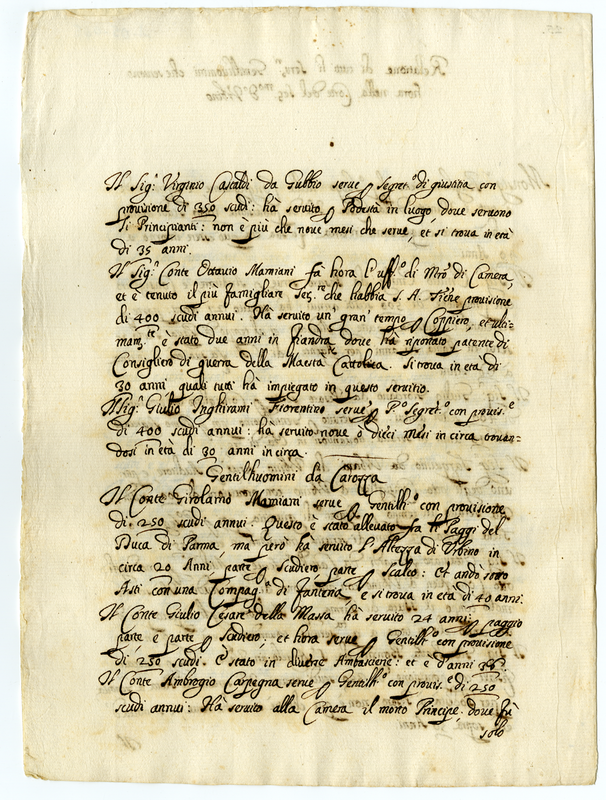 Il Sig.r Virginio Casaldi da Gubbio serve p Segret.o di giustitia con
provisione di 350 scudi: hà servito p Podestà in luogo, dove servono
li Principianti: non è più che nove mesi che serve, et si trova in età
di 35 anni.
Il Sig.r Conte Ottavio Mamiani fà hora l'uff.o di Mrõ di Camera,
et è tenuto il più famigliare Ser.re che habbia S. A. Tiene provisione
di 400 scudi annui. Hà servito un gran tempo p Coppiero, et ulti-
mam.te è stato due anni in fiandra dove hà riportato patente di
Consigliero di guerra della Maestà Cattolica. Si trova in età di
30 anni quali tutti hà impiegato in questo servitio.
Il Sig.r Giulio Inghirami Fiorentino serve p P.o Segret.o con provis.e
di 400 scudi annui: hà servito nove ò dieci mesi in circa trovan-
dosi in età di 30 anni in circa.
Gentilhuomini da Carozza
Il Conte Girolamo Mamiani serve p Gentilh.o con provisione
di 250 scudi annui: Questo è stato allevato fa li Paggi del
Duca di Parma mà però hà servito l'Altezza di Urbino in
circa 20 Anni parte p Scudiero parte p Scalco: et andò sotto
Asti con una Compag.a di fanteria e si trova in età di 40 anni.
Il Conte Giulio Cesare della Massa hà servito 24 anni p paggio
parte e parte p Scudiero, et hora serve p Gentilh.o con provisione
di 250 scudi. È stato in diverse Ambascierie: et è d'anni 38
Il Conte Ambrogio Carpegna serve p Gentilh.o con provis.e di 250
scudi annui: Hà servito alla Camera il morto Principe, dove fù
solo